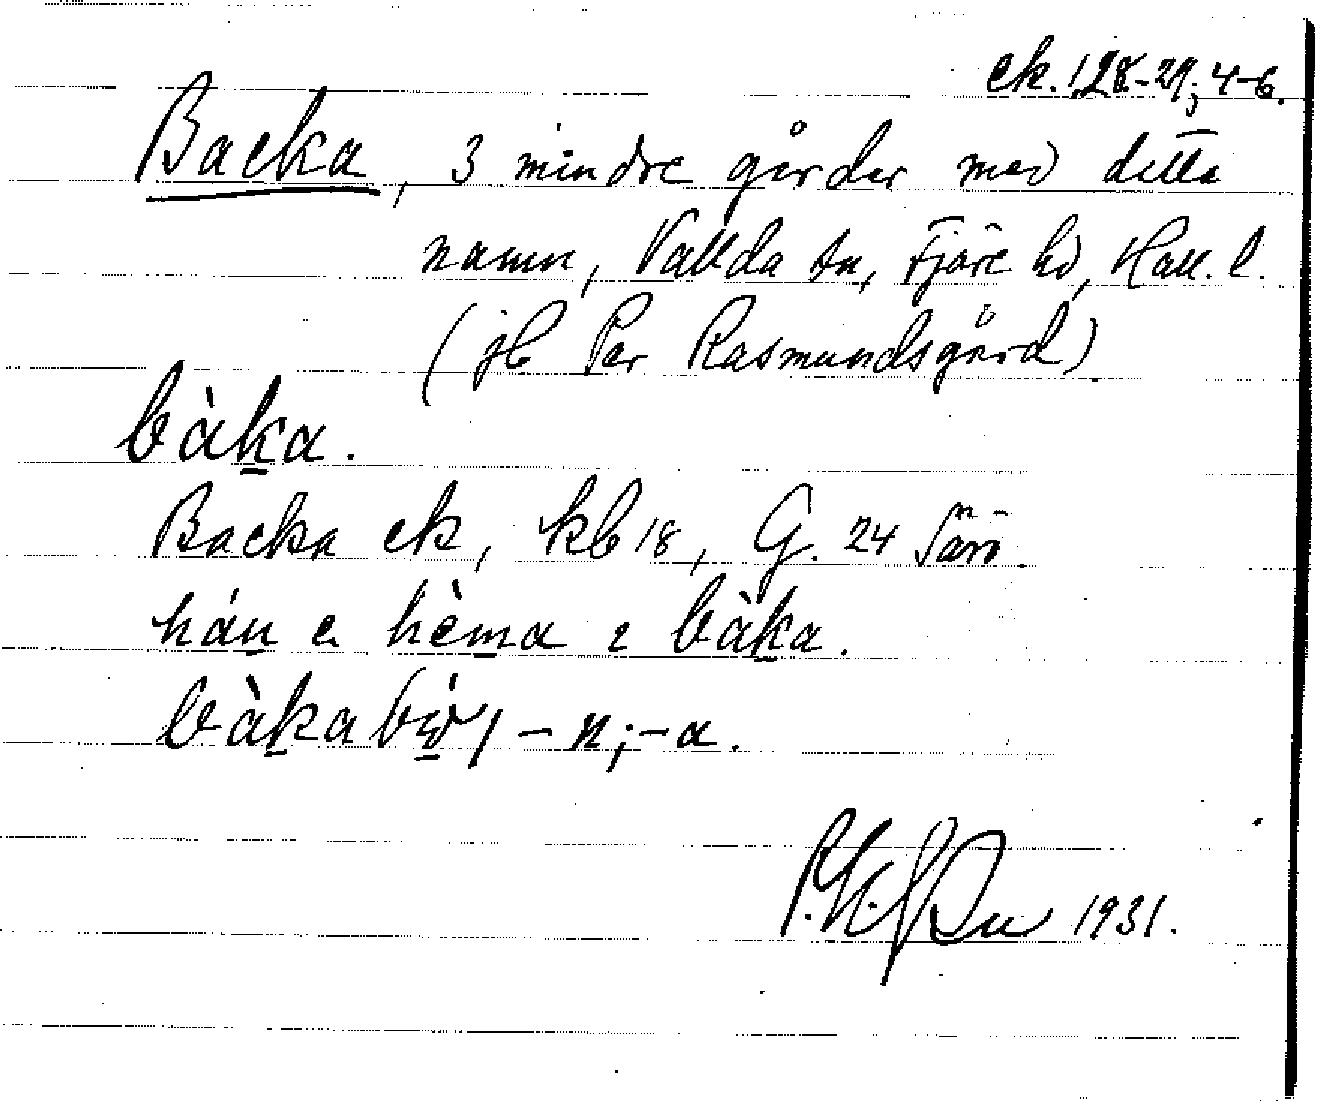 ek. 1,28-29; 4-6.
Backa, 3 mindre gårdar med detta
namn, Vallda sn, Fjäre hd, Hall. l.
(jb Per Rasmundsgård)
bàka.
Backa ek, kb 18, G. 24 Särö.
hán e hèma i bàka.
bàkabö̀, -n; -a.
1931.